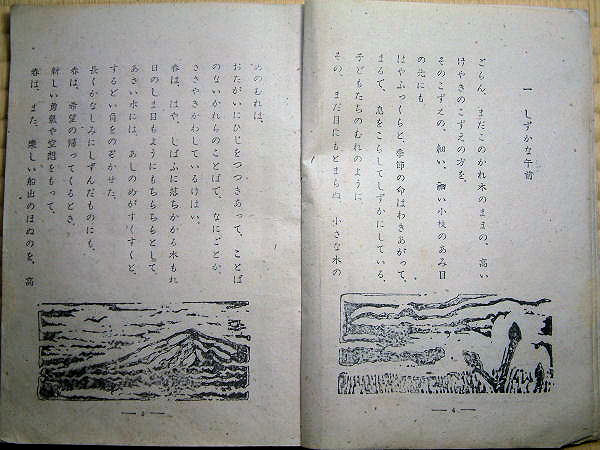 一 しずかな午前
ごらん、まだこのかれ木のままの、高い
けやきのこずえの方を。
そのこずえの、細い、細い小枝のあみ目
の先にも
はやふっくらと、季節の命はわきあがって、
まるで、息をこらしてしずかにしている、
子どもたちのむれのように。
その、まだ目にもとまらぬ、小さな木の
めのむれは、
おたがいにひじをつつきあって、ことば
のないかれらのことばで、なにごとか、
ささやきかわしているけはい。
春は、はや、しばふに落ちかかる木もれ
日のしま目もようにもちらちらとして、
あさい水には、あしのめがすくすくと、
するどい角をのぞかせた。
長くかなしみにしずんだものにも、
春は、希望の帰ってくるとき。
新しい勇氣や空想をもって、
春は、また、樂しい船出のほぬのを、高
— 4 —
— 5 —